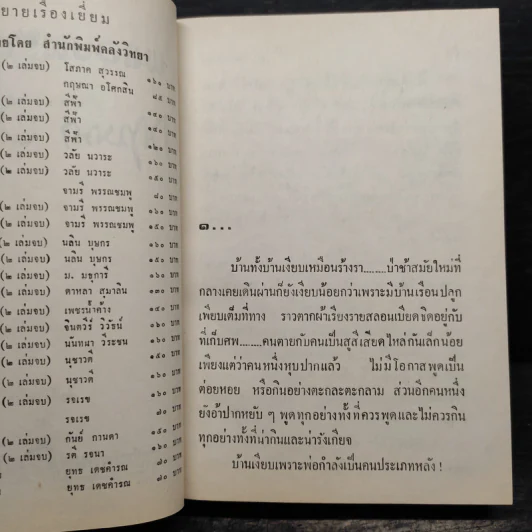 ยายเรื่องเยี่ยม
ยโดย สำนักพิมพ์คลังวิทยา
(๒ เล่มจบ) โสภาค สุวรรณ ๑๖๐ บาท
กฤษณา อโศกสิน ๘๕ บาท
(๒ เล่มจบ) สีฟ้า บาท
(๒ เล่มจบ) สีฟ้า บาท
(๒ เล่มจบ) สีฟ้า บาท
(๒ เล่มจบ) วลัย นวาระ ๑๖๐ บาท
(๒ เล่มจบ) วลัย นวาระ ๑๕๐ บาท
จามรี พรรณชมพู ๘๐ บาท
(๒ เล่มจบ) จามรี พรรณชมพู ๑๖๐ บาท
(๒ เล่มจบ) จามรี พรรณชมพู ๑๖๐ บาท
(๒ เล่มจบ) นลิน บุษกร ๑๖๐ บาท
(๒ เล่มจบ) นลิน บุษกร ๑๕๐ บาท
(๒ เล่มจบ) ม. มธุการี ๑๖๐ บาท
(๒ เล่มจบ) ดาหลา สุมาลิน บาท
(๒ เล่มจบ) เพชรน้ำค้าง บาท
(๒ เล่มจบ) จินตวีร์ วิวัธน์ บาท
(๒ เล่มจบ) นันทมา วีระชน บาท
(๒ เล่มจบ) นุชาวดี บาท
(๒ เล่มจบ) นุชาวดี บาท
(๒ เล่มจบ) รอเรข บาท
รอเรข บาท
(๒ เล่มจบ) กันย์ กานดา ๑๕๐ บาท
(๒ เล่มจบ) รตี รจนา ๑๖๐ บาท
ยุทธ เดชคำรณ ๗๐ บาท
ยุทธ เดชคำรณ ๗๐ บาท
๑...
บ้านทั้งบ้านเงียบเหมือนร้างรา........ป่าช้าสมัยใหม่ที่
กลางเคยเดินผ่านก็ยังเงียบน้อยกว่าเพราะมีบ้านเรือนปลูก
เพียบเต็มที่ทาง ราวตากผ้าเรียงรายสลอนเบียดชิดอยู่กับ
ที่เก็บศพ.........คนตายกับคนเป็นสูสีเสียดไหล่กันเล็กน้อย
เพียงแต่ว่าคนหนึ่งหุบปากแล้ว ไม่มีโอกาสพูดเป็น
ต่อยหอย หรือกินอย่างตะกละตะกลาม ส่วนอีกคนหนึ่ง
ยังอ้าปากหยับ ๆ พูดทุกอย่างทั้งที่ควรพูดและไม่ควรกิน
ทุกอย่างทั้งที่น่ากินและน่ารังเกียจ
บ้านเงียบเพราะพ่อกำลังเป็นคนประเภทหลัง !